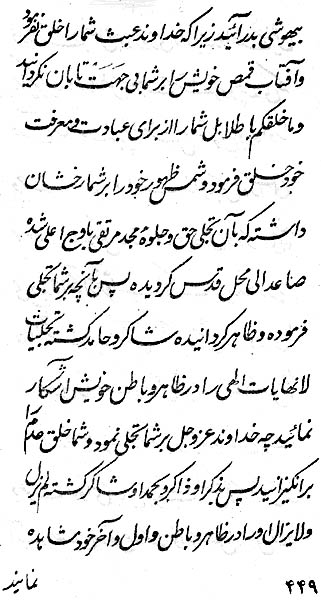 بیهوشی بدر آئید زیرا که خداوند عبث شما را خلق نفرموده
و آفتاب قمص خویش را بر شما بی جهت تابان نگردانید
و ما خلقکم باطلا بل شما را از برای عبادت و معرفت
خود خلق فرمود و شمس ظهور خود را بر شما رخشان
داشته که بآن تجلی حق و جلوهٔ مجد مرتقی باوج اعلی شده
صاعد الی محل قدس گردیده پس بآنچه بر شما تجلی
فرموده و ظاهر گردانیده شاکر و حامد گشته تجلیات
لانهایات الهی را در ظاهر و باطن خویش آشکار
نمائید چه خداوند عز و جل بر شما تجلی نمود و شما خلق عدم را
برانگیزانید پس بذکر او ذاکر و بحمد او شاکر گشته لم یزل
و لا یزال او را در ظاهر و باطن و اول و آخر خود مشاهده
نمایند
۴۴۹